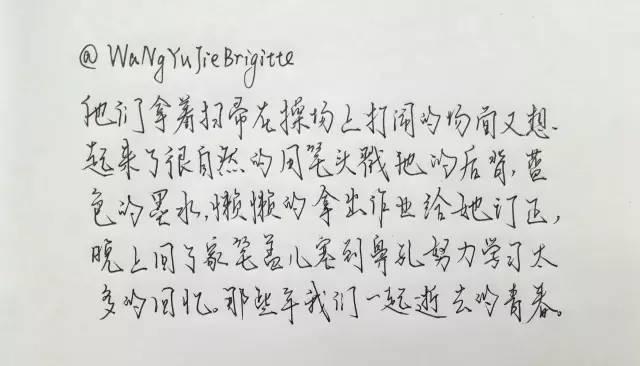 @WaNgYuJieBrigitte
他们拿着扫帚在操场上打闹的场面又想.
起来了很自然的用笔头戳他的后背,蓝
色的墨水,懒懒的拿出作业给她订正,
晚上回了家笔盖儿塞到鼻孔努力学习太
多的回忆。那些年我们一起逝去的青春。